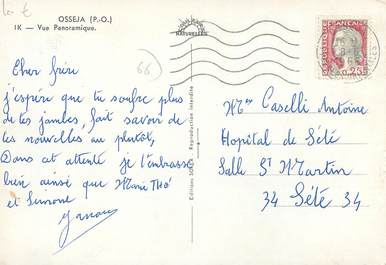 OSSEJA (P.-O.)
IX - Vue Panoramique.
66
Cher frère
j'espère que tu soufre plus
de tes jambes, fait savoir de
tes nouvelles au plutôt,
Dans cet attente je t'embrasse
bien ainsi que Marie Thé
et Simone
Reproduction interdite
Editions
FRANÇAISE
0,25
Caselli Antoine
Hopital de Sète
Salle St Martin
34 Sète 34